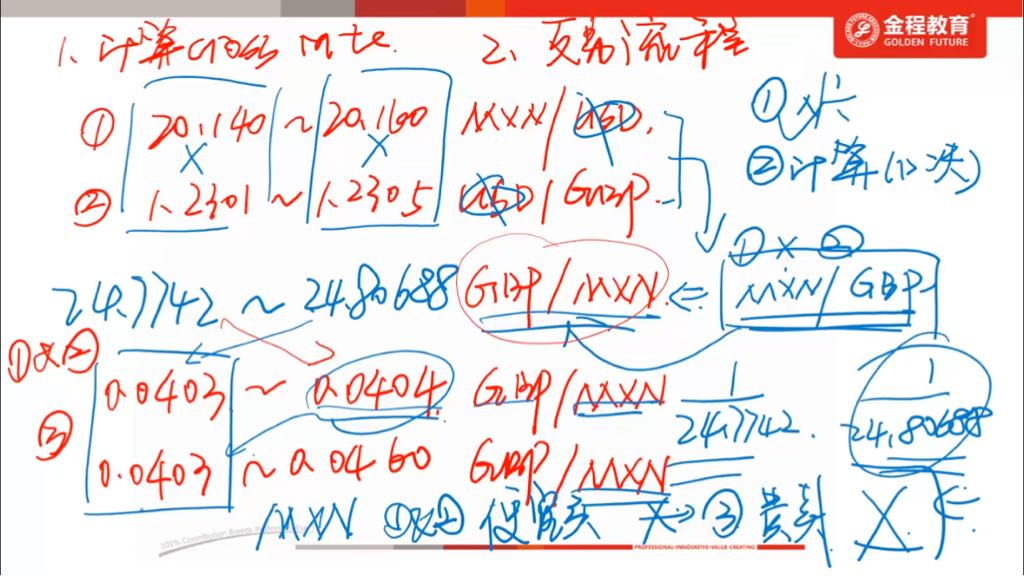 金程教育
GOLDEN FUTURE
1、计算cross rate. 2、交易流程
① 20.140 ~ 20.160 MXN/USD.
② 1.2301 ~ 1.2305 USD/GBP.
①
②计算(1次)
①x②
24.7742 ~ 24.80688 GBP/MXN. ⇐ MXN/GBP
①&② 0.0403 ~ 0.0404. GBP/MXN 1/24.7742. 1/24.80688
③ 0.0403 ~ 0.0460 GBP/MXN
MXN ①&② 便宜买 → ③ 贵卖
101% Contribution Breeds Professionalism
PROFESSIONAL·INNOVATIVE·VALUE-CREATING